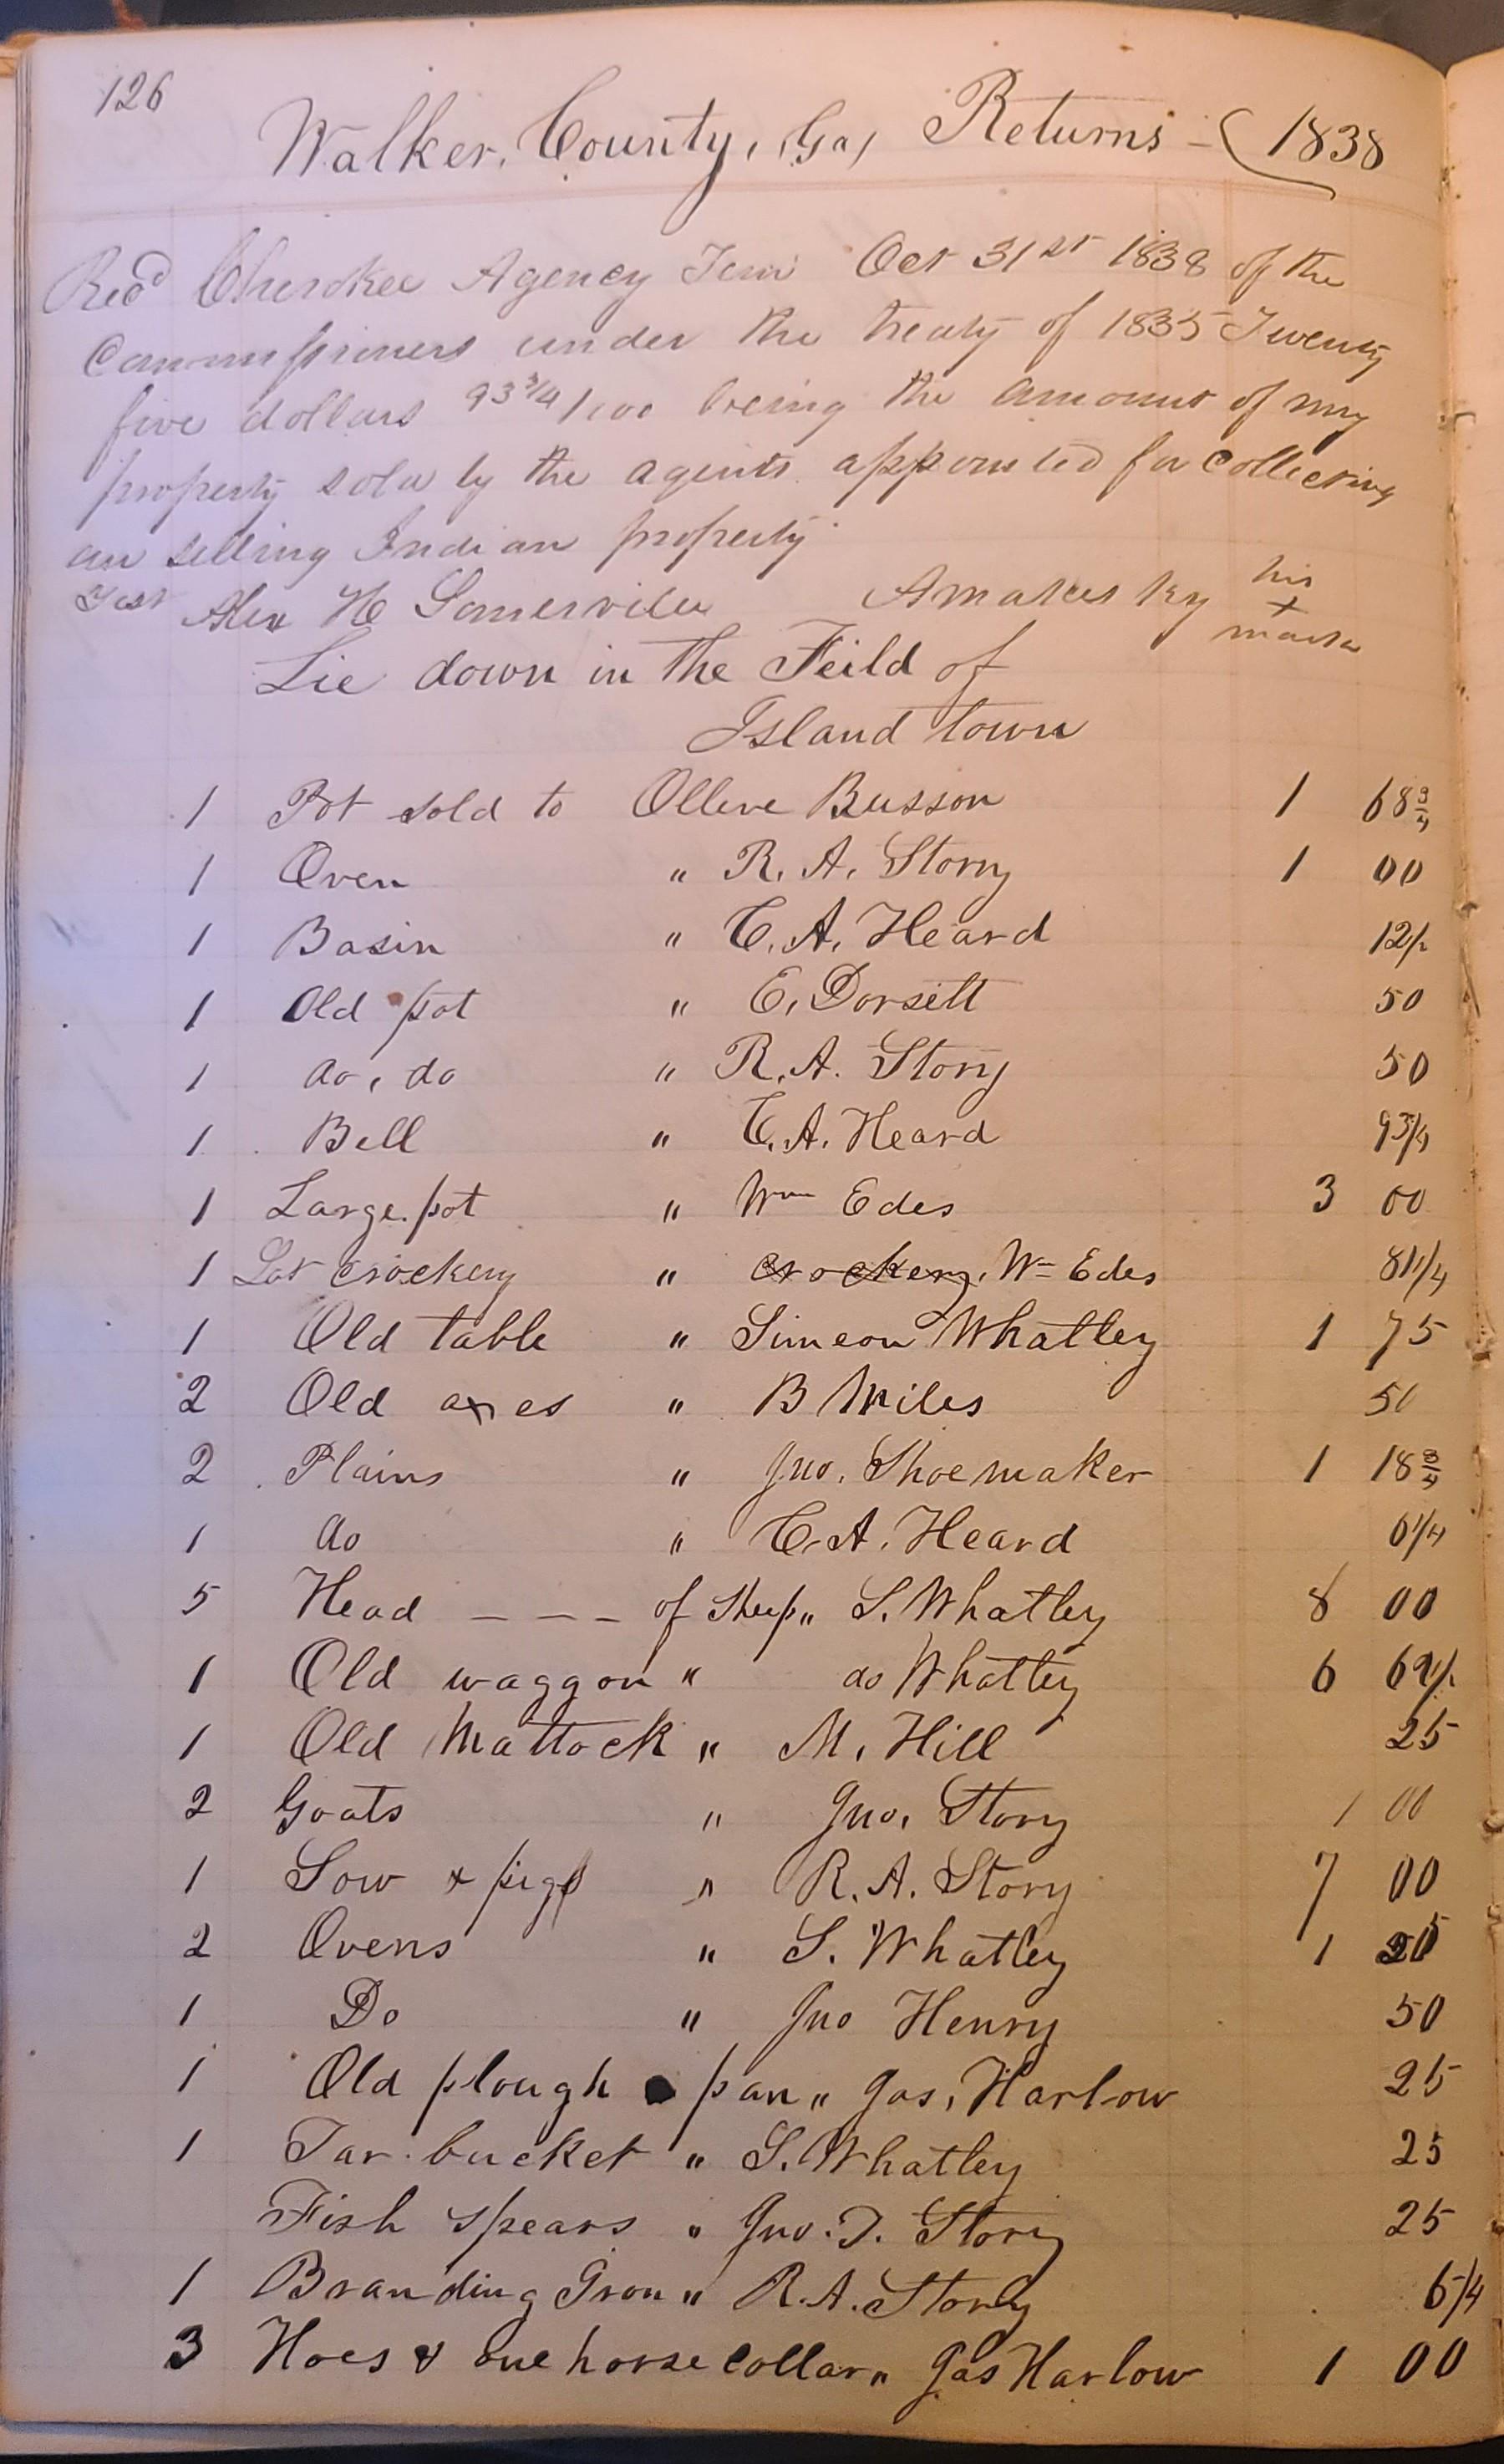 126
Walker, County, (Ga) Returns – (1838
Recd Cherokee Agency Ten Oct 31st 1838 of the
Commissioners under the treaty of 1835 Twenty
five dollars 93 3/4/100 being the amount of my
property sold by the agents appointed for collecting
an selling Indian property
Test Alex H Somerville Amateeskey his
x
mark
Lie down in the Feild of
Island town
1 Pot sold to Ollive Busson 1 68 3/4
1 Oven " R. A. Story 1 00
1 Basin " C. A. Heard 12 1/2
1 Old pot " E. Dorsett 50
1 do, do " R. A. Story 50
1 Bell " C. A. Heard 93/4
1 Large pot " Wm Edes 3 00
1 Lot crockery " crockery. Wm Edes 81 1/4
1 Old table " Simeon Whatley 1 75
2 Old axes " B Miles 50
2 Plains " Jno. Shoemaker 1 18 3/4
1 do " C. A. Heard 6 1/4
5 Head – – – of Sheep " S. Whatley 8 00
1 Old waggon " do Whatley 6 62 1/2
1 Old Mattock " M. Hill 25
2 Goats " Jno. Story 1 00
1 Sow & pigs " R. A. Story 7 00
2 Ovens " S. Whatley 1
1 Do " Jno Henry 50
1 Old plough pan " Jas. Harlow 25
1 Tar bucket " S. Whatley 25
Fish spears " Jno. T. Story 25
1 Branding Iron " R. A. Story 6/4
3 Hoes & one horse collar " Jas Harlow 1 00